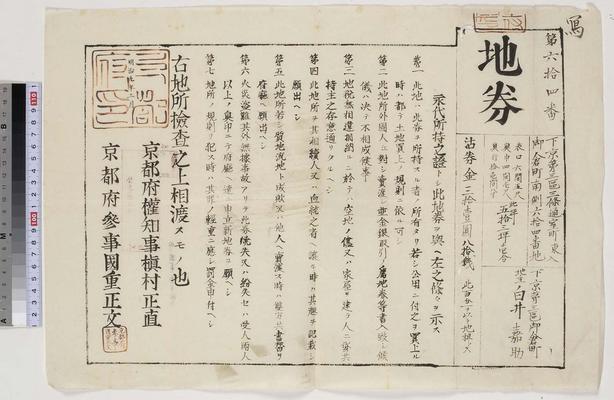 寫
第六拾四番
地券
下京第三區三條通室町東入
御倉町南側六拾四番地
表口六間五尺
五拾三坪
下京第三區御倉町
地主 臼井嘉助
沽券金三拾壹圓八拾錢
永代所持之證トシ此地券ヲ與ヘ左之條々ヲ示ス
第一 此地ハ此券ヲ所持スル者ノ所有タリ若シ公用ニ付之ヲ買上ル
時ハ都テ土地買上ノ規則ニ依ル可シ
第二 此地所外國人ニ對シ賣渡シ並金銀取引ノ為地券等書入致シ候
儀ハ決テ不相成候事
第三 地税無相違相納ルニ於テハ空地ノ儘又ハ家屋ヲ建ラ人ニ貸共
持主之存意通リタルヘシ
第四 此地所ヲ其相續人又ハ血統之者ヘ讓ル時ハ其趣ヲ記載シ
願出ヘシ
第五 此地所若シ質地流地ト成歟又ハ他人ヘ賣渡ス時ハ雙方共書留リ
府廳ヘ願出ヘシ
第六 火災盗難其外無據各故アリテ此券燒失又ハ紛失セハ受人両人
以上ノ奥印ニテ府廳ヘ達シ申立新地券ヲ願ヘシ
第七 地所ノ規則ヲ犯ス時ハ其罪ノ輕重ニ應シ罰金申付ヘシ
右地所檢査之上相渡スモノ也
明治
京都府權知事槇村正直
京都府参事國重正文